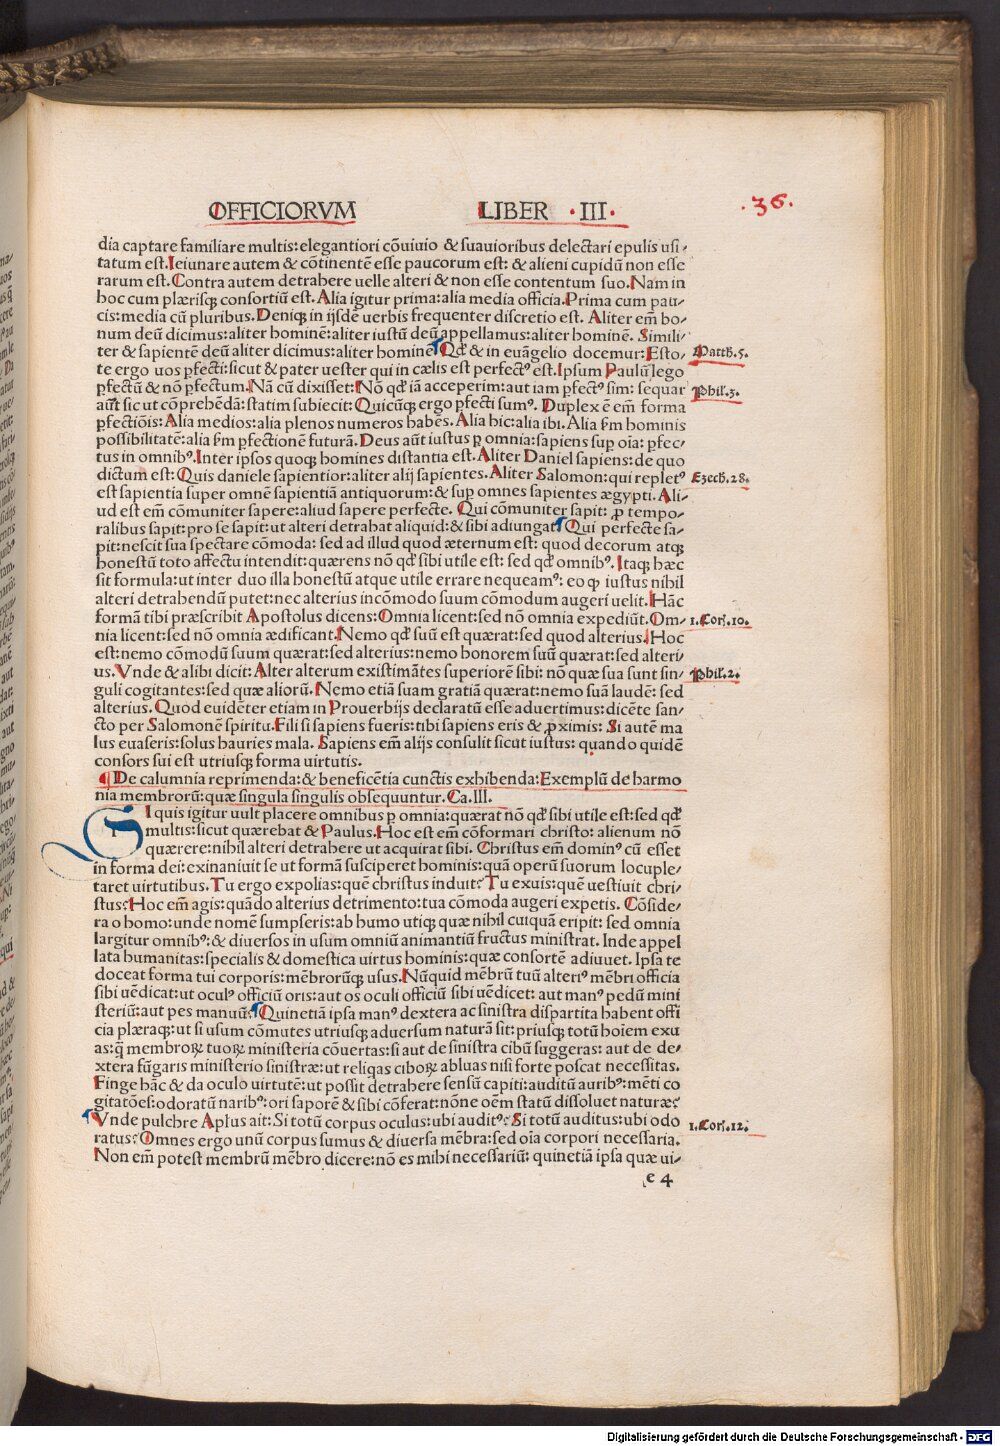 OFFICIORVM LIBER ·III· .36.
dia captare familiare multis: elegantiori cōuiuio & suauioribus delectari epulis usi-
tatum est. Ieiunare autem & cōtinentē esse paucorum est: & alieni cupidū non esse
rarum est. Contra autem detrahere uelle alteri & non esse contentum suo. Nam in
hoc cum plærisq; consortiū est. Alia igitur prima: alia media officia. Prima cum pau-
cis: media cū pluribus. Deniq; in ijsdē uerbis frequenter discretio est. Aliter em̄ bo-
num deū dicimus: aliter hominē: aliter iustū deū appellamus: aliter hominē. Simili-
ter & sapientē deū aliter dicimus: aliter hominē Qđ & in euāgelio docemur: Esto- Matth.5.
te ergo uos ꝑfecti: sicut & pater uester qui in cælis est perfectꝰ est. Ipsum Paulū lego
ꝑfectū & nō ꝑfectum. Nā cū dixisset: Nō qđ iā acceperim: aut iam ꝑfectꝰ sim: sequar Phil.3.
aūt sic ut cōprehēdā: statim subiecit: Quicūq; ergo ꝑfecti sumꝰ. Duplex ē em̄ forma
ꝑfectiōis: Alia medios: alia plenos numeros habēs. Alia hic: alia ibi. Alia ẜm hominis
possibilitatē: alia ẜm ꝑfectionē futurā. Deus aūt iustus ꝑ omnia: sapiens suꝑ oīa: ꝑfec-
tus in omnibꝰ. Inter ipsos quoq; homines distantia est. Aliter Daniel sapiens: de quo
dictum est: Quis daniele sapientior: aliter alij sapientes. Aliter Salomon: qui repletꝰ Ezech.28.
est sapientia super omnē sapientiā antiquorum: & suꝑ omnes sapientes ægypti. Ali-
ud est em̄ cōmuniter sapere: aliud sapere perfecte. Qui cōmuniter sapit: ꝓ tempo-
ralibus sapit: pro se sapit: ut alteri detrahat aliquid: & sibi adiungat Qui perfecte sa-
pit: nescit sua spectare cōmoda: sed ad illud quod æternum est: quod decorum atq;
honestū toto affectu intendit: quærens nō qđ sibi utile est: sed qđ omnibꝰ. Itaq; hæc
sit formula: ut inter duo illa honestū atque utile errare nequeamꝰ: eo ꝙ iustus nihil
alteri detrahendū putet: nec alterius incōmodo suum cōmodum augeri uelit. Hāc
formā tibi præscribit Apostolus dicens: Omnia licent: sed nō omnia expediūt. Om- 1.Cor.10.
nia licent: sed nō omnia ædificant. Nemo qđ suū est quærat: sed quod alterius. Hoc
est: nemo cōmodū suum quærat: sed alterius: nemo honorem suū quærat: sed alteri-
us. Vnde & alibi dicit: Alter alterum existimātes superiorē sibi: nō quæ sua sunt sin- Phil.2.
guli cogitantes: sed quæ aliorū. Nemo etiā suam gratiā quærat: nemo suā laudē: sed
alterius. Quod euidēter etiam in Prouerbijs declaratū esse aduertimus: dicēte san-
cto per Salomonē spiritu. Fili si sapiens fueris: tibi sapiens eris & ꝓximis: Si autē ma
lus euaseris: solus hauries mala. Sapiens em̄ alijs consulit sicut iustus: quando quidē
consors sui est utriusq; forma uirtutis.
¶ De calumnia reprimenda: & beneficētia cunctis exhibenda: Exemplū de harmo
nia membrorū: quæ singula singulis obsequuntur. Ca.III.
SI quis igitur uult placere omnibus ꝑ omnia: quærat nō qđ sibi utile est: sed qđ
multis: sicut quærebat & Paulus. Hoc est em̄ cōformari christo: alienum nō
quærere: nihil alteri detrahere ut acquirat sibi. Christus em̄ dominꝰ cū esset
in forma dei: exinaniuit se ut formā susciperet hominis: quā operū suorum locuple-
taret uirtutibus. Tu ergo expolias: quē christus induit? Tu exuis: quē uestiuit chri-
stus? Hoc em̄ agis: quādo alterius detrimento: tua cōmoda augeri expetis. Cōside-
ra o homo: unde nomē sumpseris: ab humo utiq; quæ nihil cuiquā eripit: sed omnia
largitur omnibꝰ: & diuersos in usum omniū animantiū fructus ministrat. Inde appel
lata humanitas: specialis & domestica uirtus hominis: quæ consortē adiuuet. Ipsa te
doceat forma tui corporis: mēbrorūq; usus. Nūquid mēbrū tuū alteriꝰ mēbri officia
sibi uēdicat: ut oculꝰ officiū oris: aut os oculi officiū sibi uēdicet: aut manꝰ pedū mini
steriū: aut pes manuū? Quinetiā ipsa manꝰ dextera ac sinistra dispartita habent offi
cia plæraq;: ut si usum cōmutes utriusq; aduersum naturā sit: priusq; totū hoīem exu
as: q̄ membroꝝ tuoꝝ ministeria cōuertas: si aut de sinistra cibū suggeras: aut de de-
xtera fūgaris ministerio sinistræ: ut reliqas ciboꝝ abluas nisi forte poscat necessitas.
Finge hāc & da oculo uirtutē: ut possit detrahere sensū capiti: auditū auribꝰ: mēti co
gitatōes: odoratū naribꝰ: ori saporē & sibi cōferat: nōne oēm statū dissoluet naturæ?
Vnde pulchre Apl'us ait: Si totū corpus oculus: ubi auditꝰ? Si totū auditus: ubi odo 1.Cor.12.
ratus? Omnes ergo unū corpus sumus & diuersa mēbra: sed oīa corpori necessaria.
Non em̄ potest membrū mēbro dicere: nō es mihi necessariū: quinetiā ipsa quæ ui-
e 4
Digitalisierung gefördert durch die Deutsche Forschungsgemeinschaft - DFG